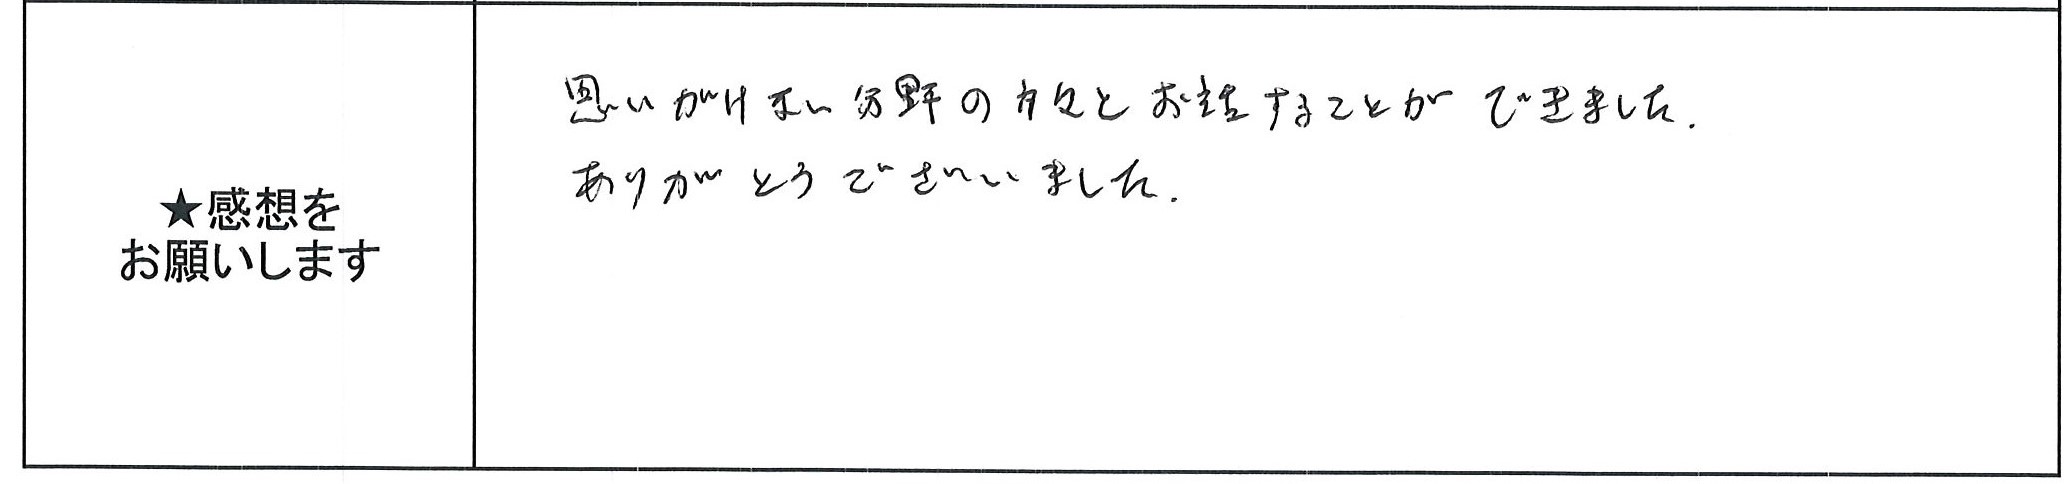 ★感想を
お願いします
思いがけない分野の方々とお話することができました.
ありがとうございました.